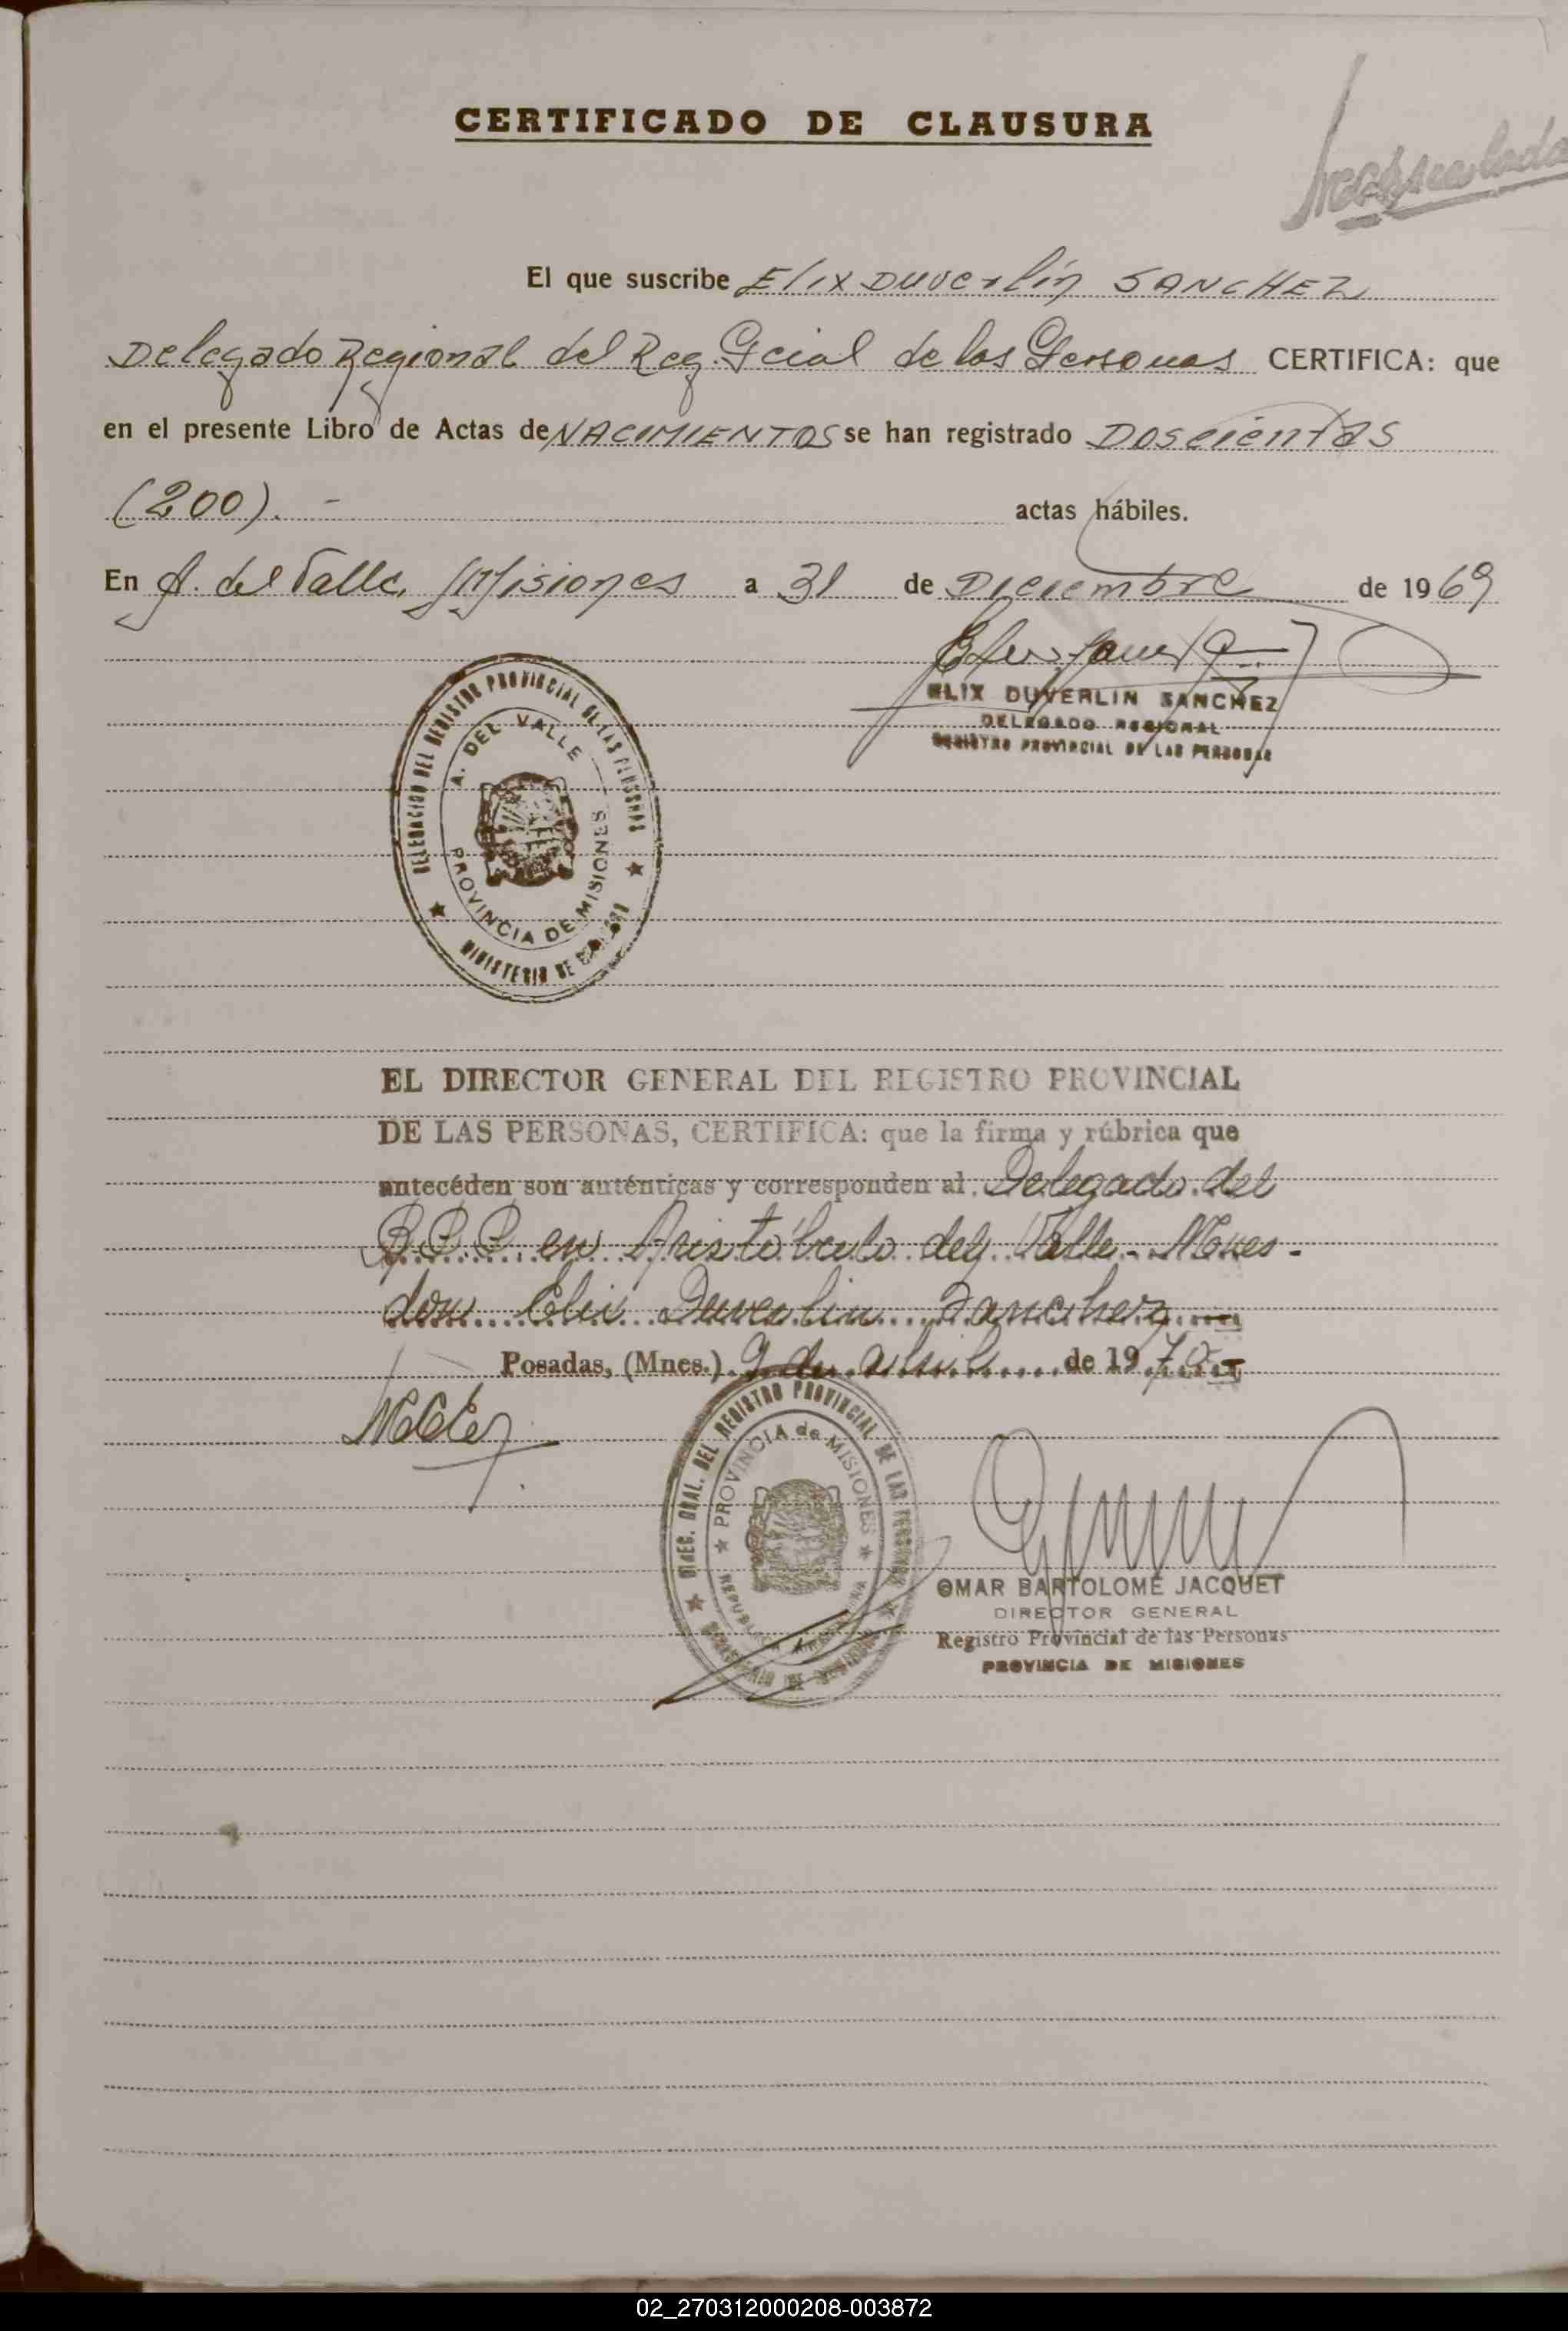 CERTIFICADO DE CLAUSURA
El que suscribe Elix Duverlin SANCHEZ
Delegado Regional del Reg. Pcial de las Personas CERTIFICA: que
en el presente Libro de Actas de NACIMIENTOS se han registrado Doscientas
(200).- actas hábiles.
En A. del Valle, Misiones a 31 de Diciembre de 1969
ELIX DUVERLIN SANCHEZ
DELEGADO REGIONAL
REGISTRO PROVINCIAL DE LAS PERSONAS
DELEGACION DEL REGISTRO PROVINCIAL DE LAS PERSONAS
A. DEL VALLE
PROVINCIA DE MISIONES
MINISTERIO DE
EL DIRECTOR GENERAL DEL REGISTRO PROVINCIAL
DE LAS PERSONAS, CERTIFICA: que la firma y rúbrica que
antecéden son auténticas y corresponden al Delegado del
R.P.P. en Aristóbulo del Valle - Mnes -
don Elix Duverlin Sanchez
Posadas, (Mnes.) 9 de abril de 1970
DIREC. GRAL. DEL REGISTRO PROVINCIAL DE LAS PERSONAS
PROVINCIA de MISIONES
REPUBLICA ARGENTINA
MINISTERIO DE
OMAR BARTOLOME JACQUET
DIRECTOR GENERAL
Registro Provincial de las Personas
PROVINCIA DE MISIONES
02_270312000208-003872